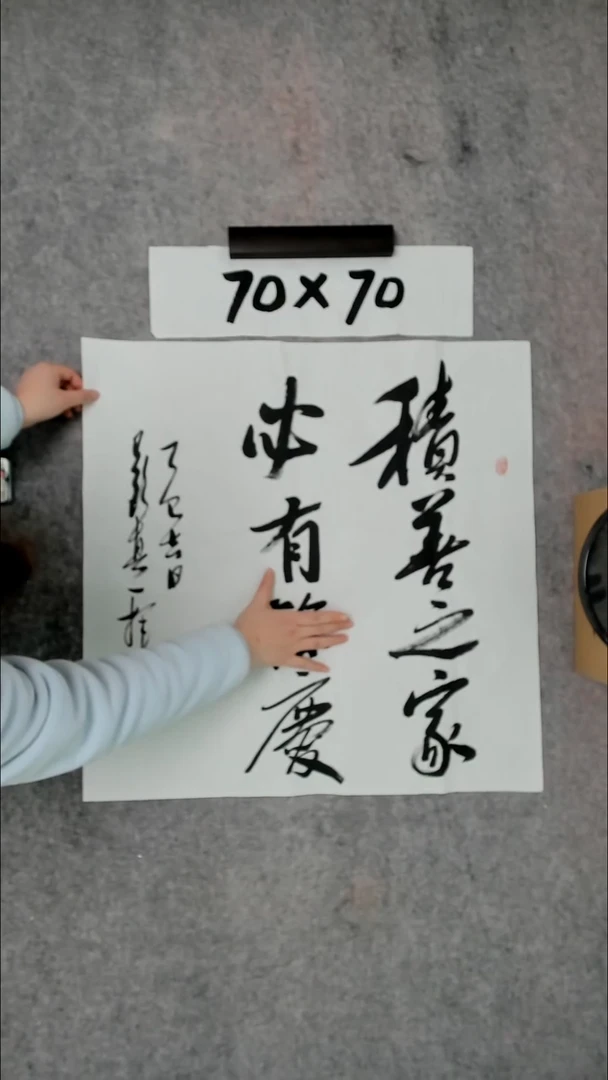 70×70
積善之家
必有 慶
乙巳吉日